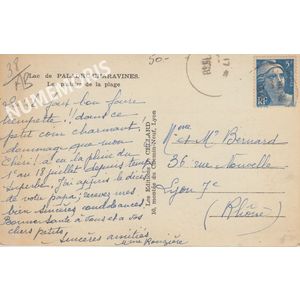 38
Lac de PALADRU-CHARAVINES.
Le de la plage
NUMEMORIS
50-
fait bon faire
trempette !! dans ce
petit coin charmant,
dommage que mon
Chéri ! a eu la pluie du
1er au 18 juillet depuis temps
superbe. J'ai appris le décès
de votre papa, recevez mes
bien sincères condoléances.
Bonne santé à tous et à vos
chers petits.
Sincères amitiés
Mme
Les Editions
Lyon
Mme et Mr Bernard
36 rue Nouvelle
Lyon 7e
(Rhône)